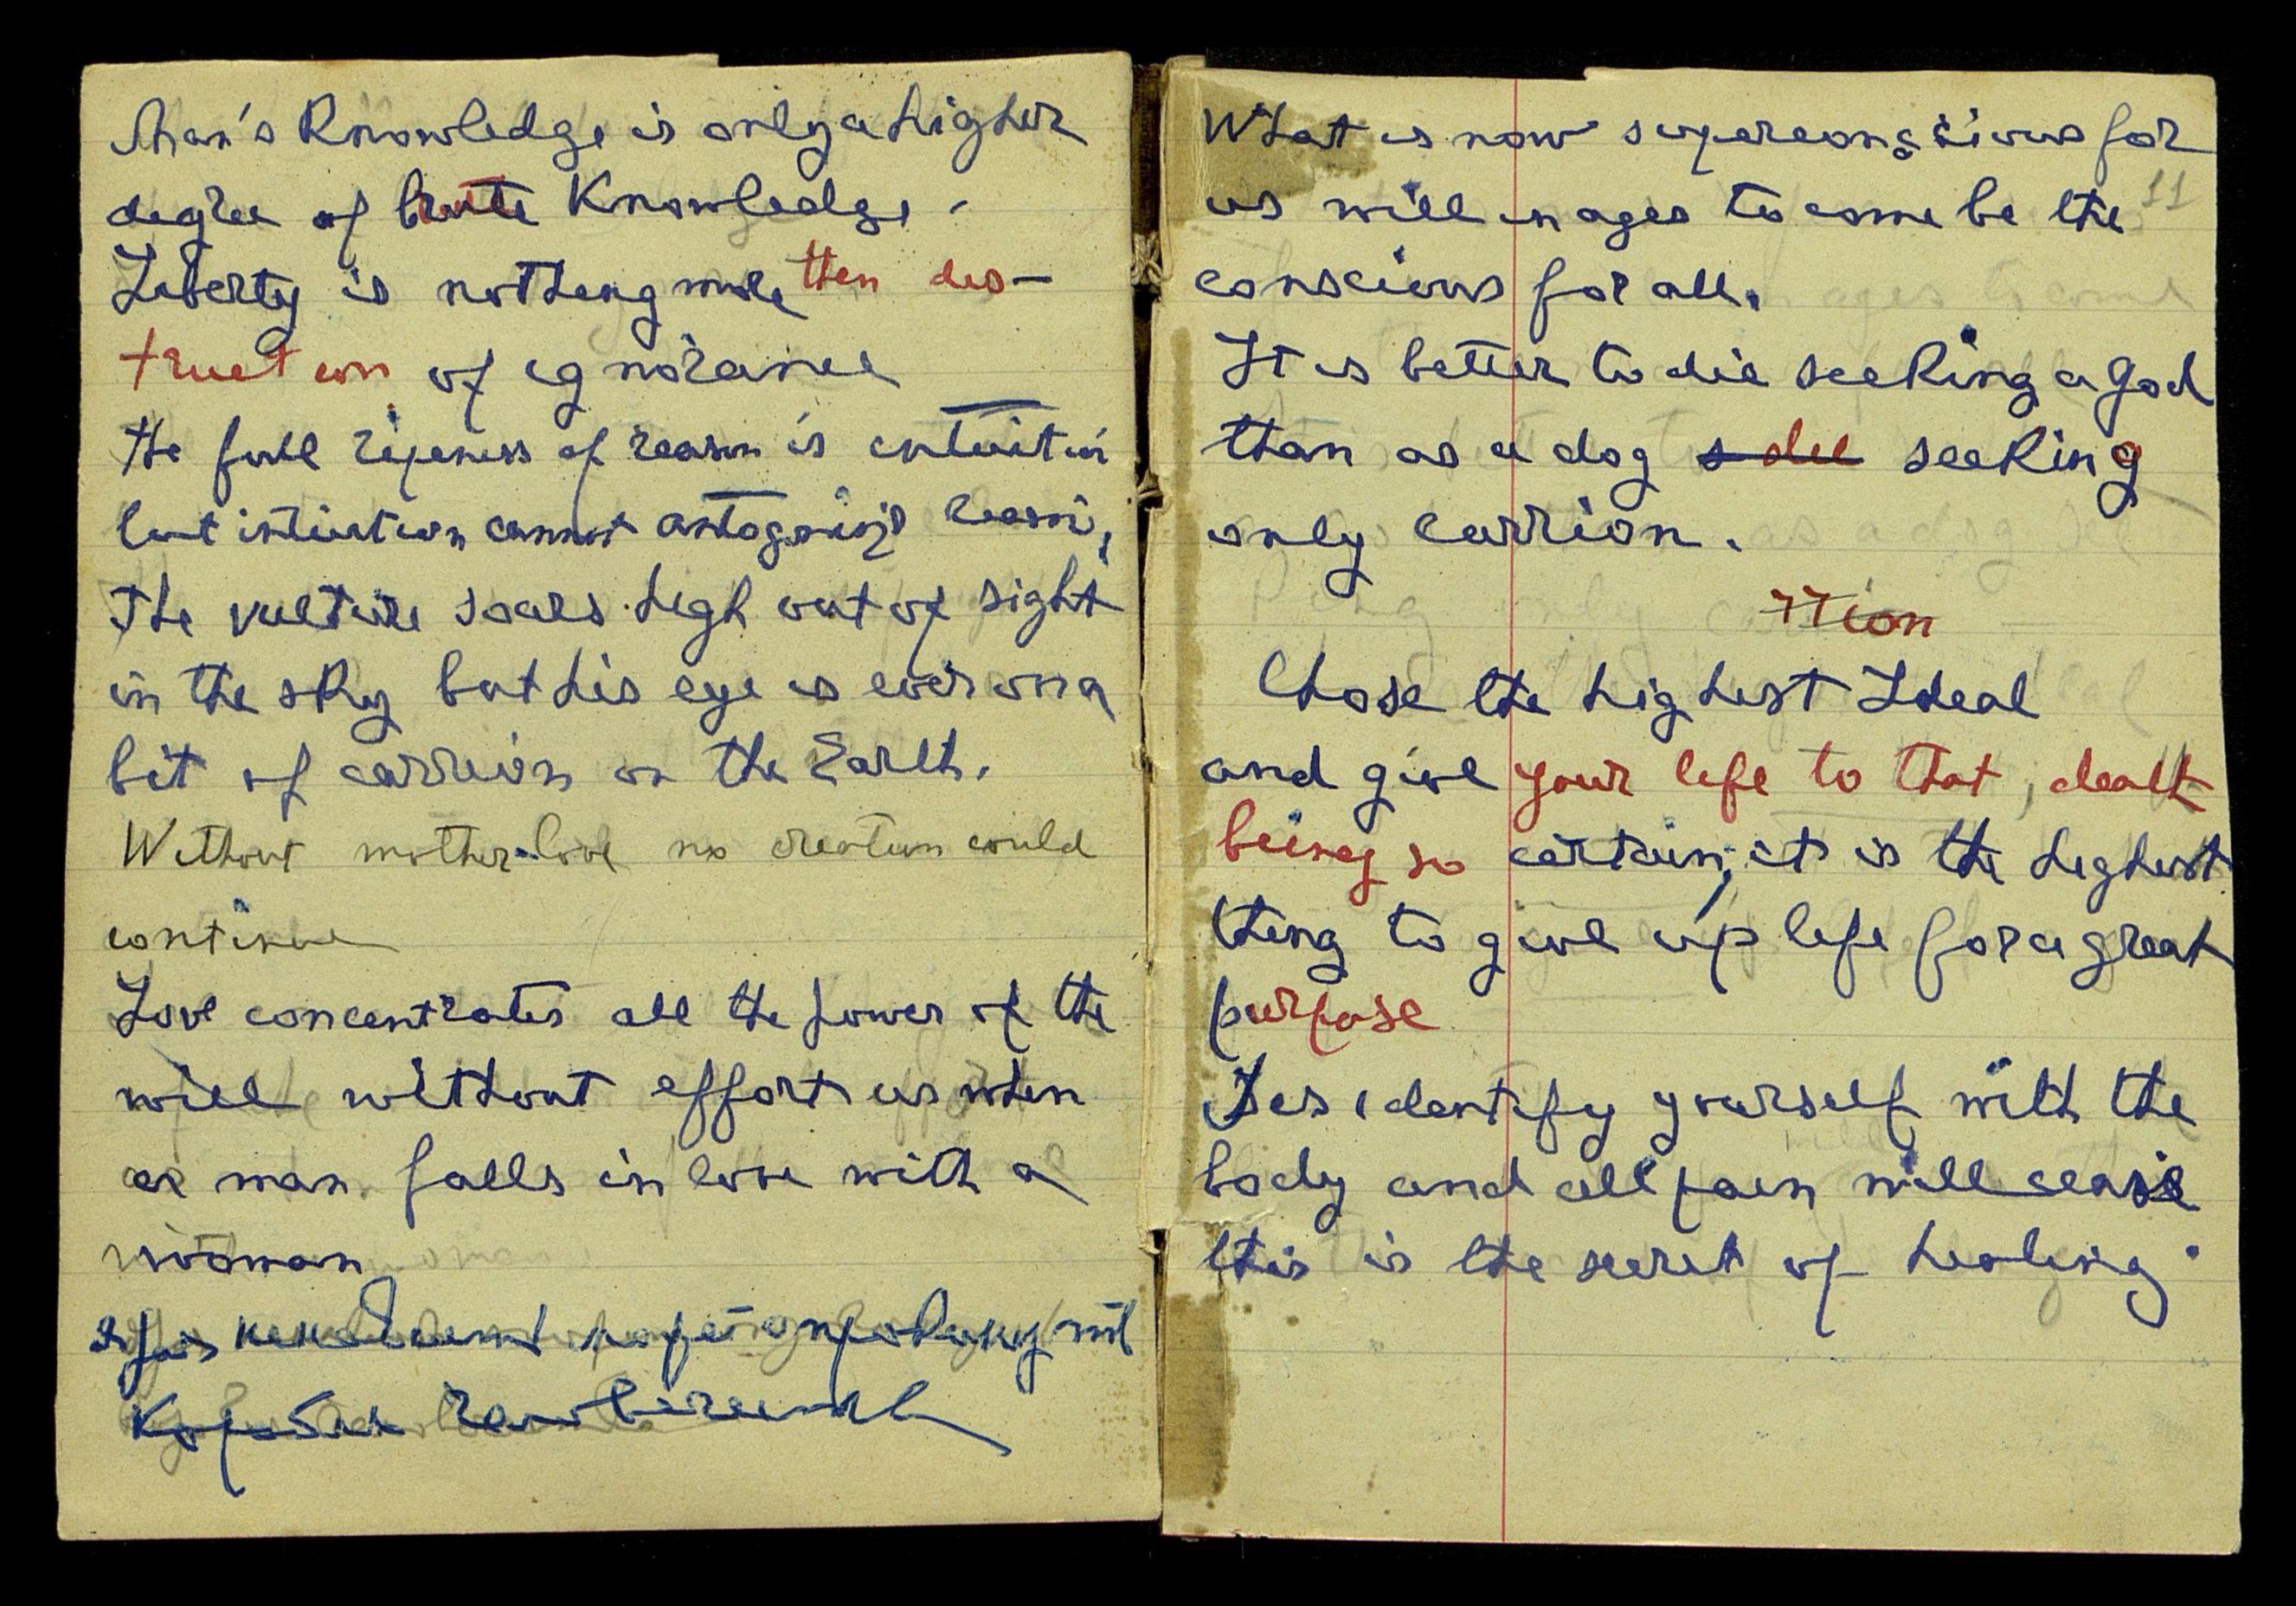 Man's Knowledge is only a higher
degree of brute Knowledge.
Liberty is nothing more then des-
truction of ignorance
the full ripeness of reason is intuition
but intiution cannot antogonize reason,
The vulture soars high out of sight
in the sky but his eye is ever on a
bit of carrion on the Earth.
Without mother-love no creation could
continue
Love concentrates all the power of the
will without effort as when
a man falls in love with a
woman
What is now superconscious for
us will in ages to come be the
11
conscious for all.
It is better to die seeking a God
than as a dog seeking
only carrion.
rrion
Chose the highest Ideal
and give your life to that, death
being so certain, it is the highest
thing to give up life for a great
purpose
Desidentify yourself with the
body and all pain will cease
this is the secret of healing.